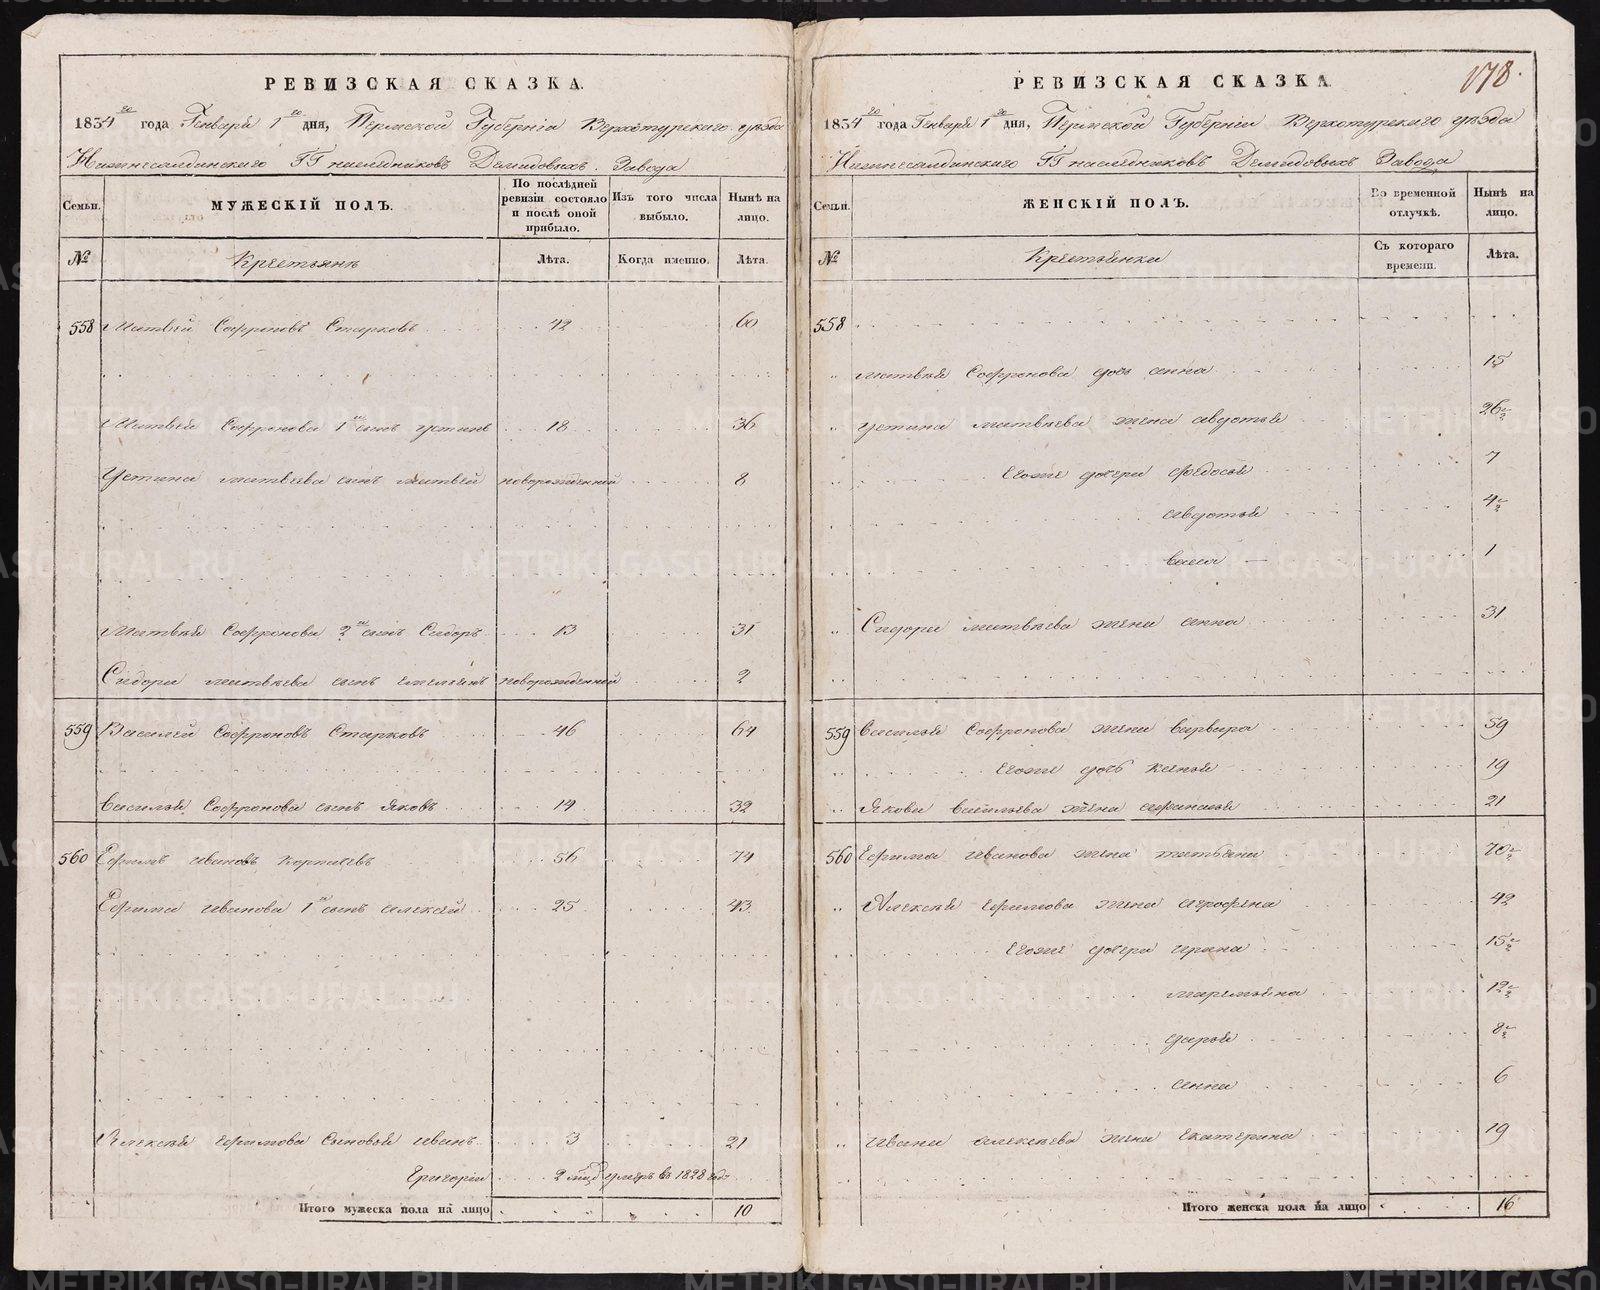 РЕВИЗСКАЯ СКАЗКА.
1834го года Генваря 1го дня, Пермской Губерніи Верхотурскаго уѣзда
Нижнесалдинскаго ГГ наслѣдниковъ Демидовыхъ Завода
Семьи.
МУЖЕСКІЙ ПОЛЪ.
По послѣдней ревизіи состояло и послѣ оной прибыло.
Изъ того числа выбыло.
Нынѣ на лицо.
№ Крестьянъ Лѣта. Когда именно. Лѣта.
558 Матвѣй Софроновъ Старковъ 42 60
Матвѣя Софронова 1й сынъ Устинъ 18 36
Устина Матвѣева сынъ Матвѣй новорожденной 8
Матвѣя Софронова 2й сынъ Сидоръ 13 31
Сидора Матвѣева сынъ Емельянъ новорожденной 2
559 Василей Софроновъ Старковъ 46 64
Василья Софронова сынъ Яковъ 14 32
560 Ефимъ Ивановъ Корпачевъ 56 74
Ефима Иванова 1й сынъ Алексѣй 25 43
Алексѣя Ефимова Сыновья Иванъ 3 21
Григорій 2 умеръ въ 1828 году
Итого мужеска пола на лицо 10
РЕВИЗСКАЯ СКАЗКА.
178.
1834го года Генваря 1го дня, Пермской Губерніи Верхотурскаго уѣзда
Нижнесалдинскаго ГГ наслѣдниковъ Демидовыхъ Завода
Семьи.
ЖЕНСКІЙ ПОЛЪ.
Во временной отлучкѣ.
Нынѣ на лицо.
№ Крестьянки Съ котораго времени. Лѣта.
558
Матвѣя Софронова дочь Анна 15
Устина Матвѣева жена Авдотья 26½
Егоже дочери Федосья 7
Авдотья 4½
Васса 1
Сидора Матвѣева жена Анна 31
559 Василья Софронова жена Варвара 59
Егоже дочь Ксенья 19
Якова Васильева жена Афанасья 21
560 Ефима Иванова жена Татьяна 70½
Алексѣя Ефимова жена Агрофена 42
Егоже дочери Ирина 15½
Маремьяна 12½
Дарья 8½
Анна 6
Ивана Алексѣева жена Екатерина 19
Итого женска пола на лицо 16
METRIKI.GASO-URAL.RU